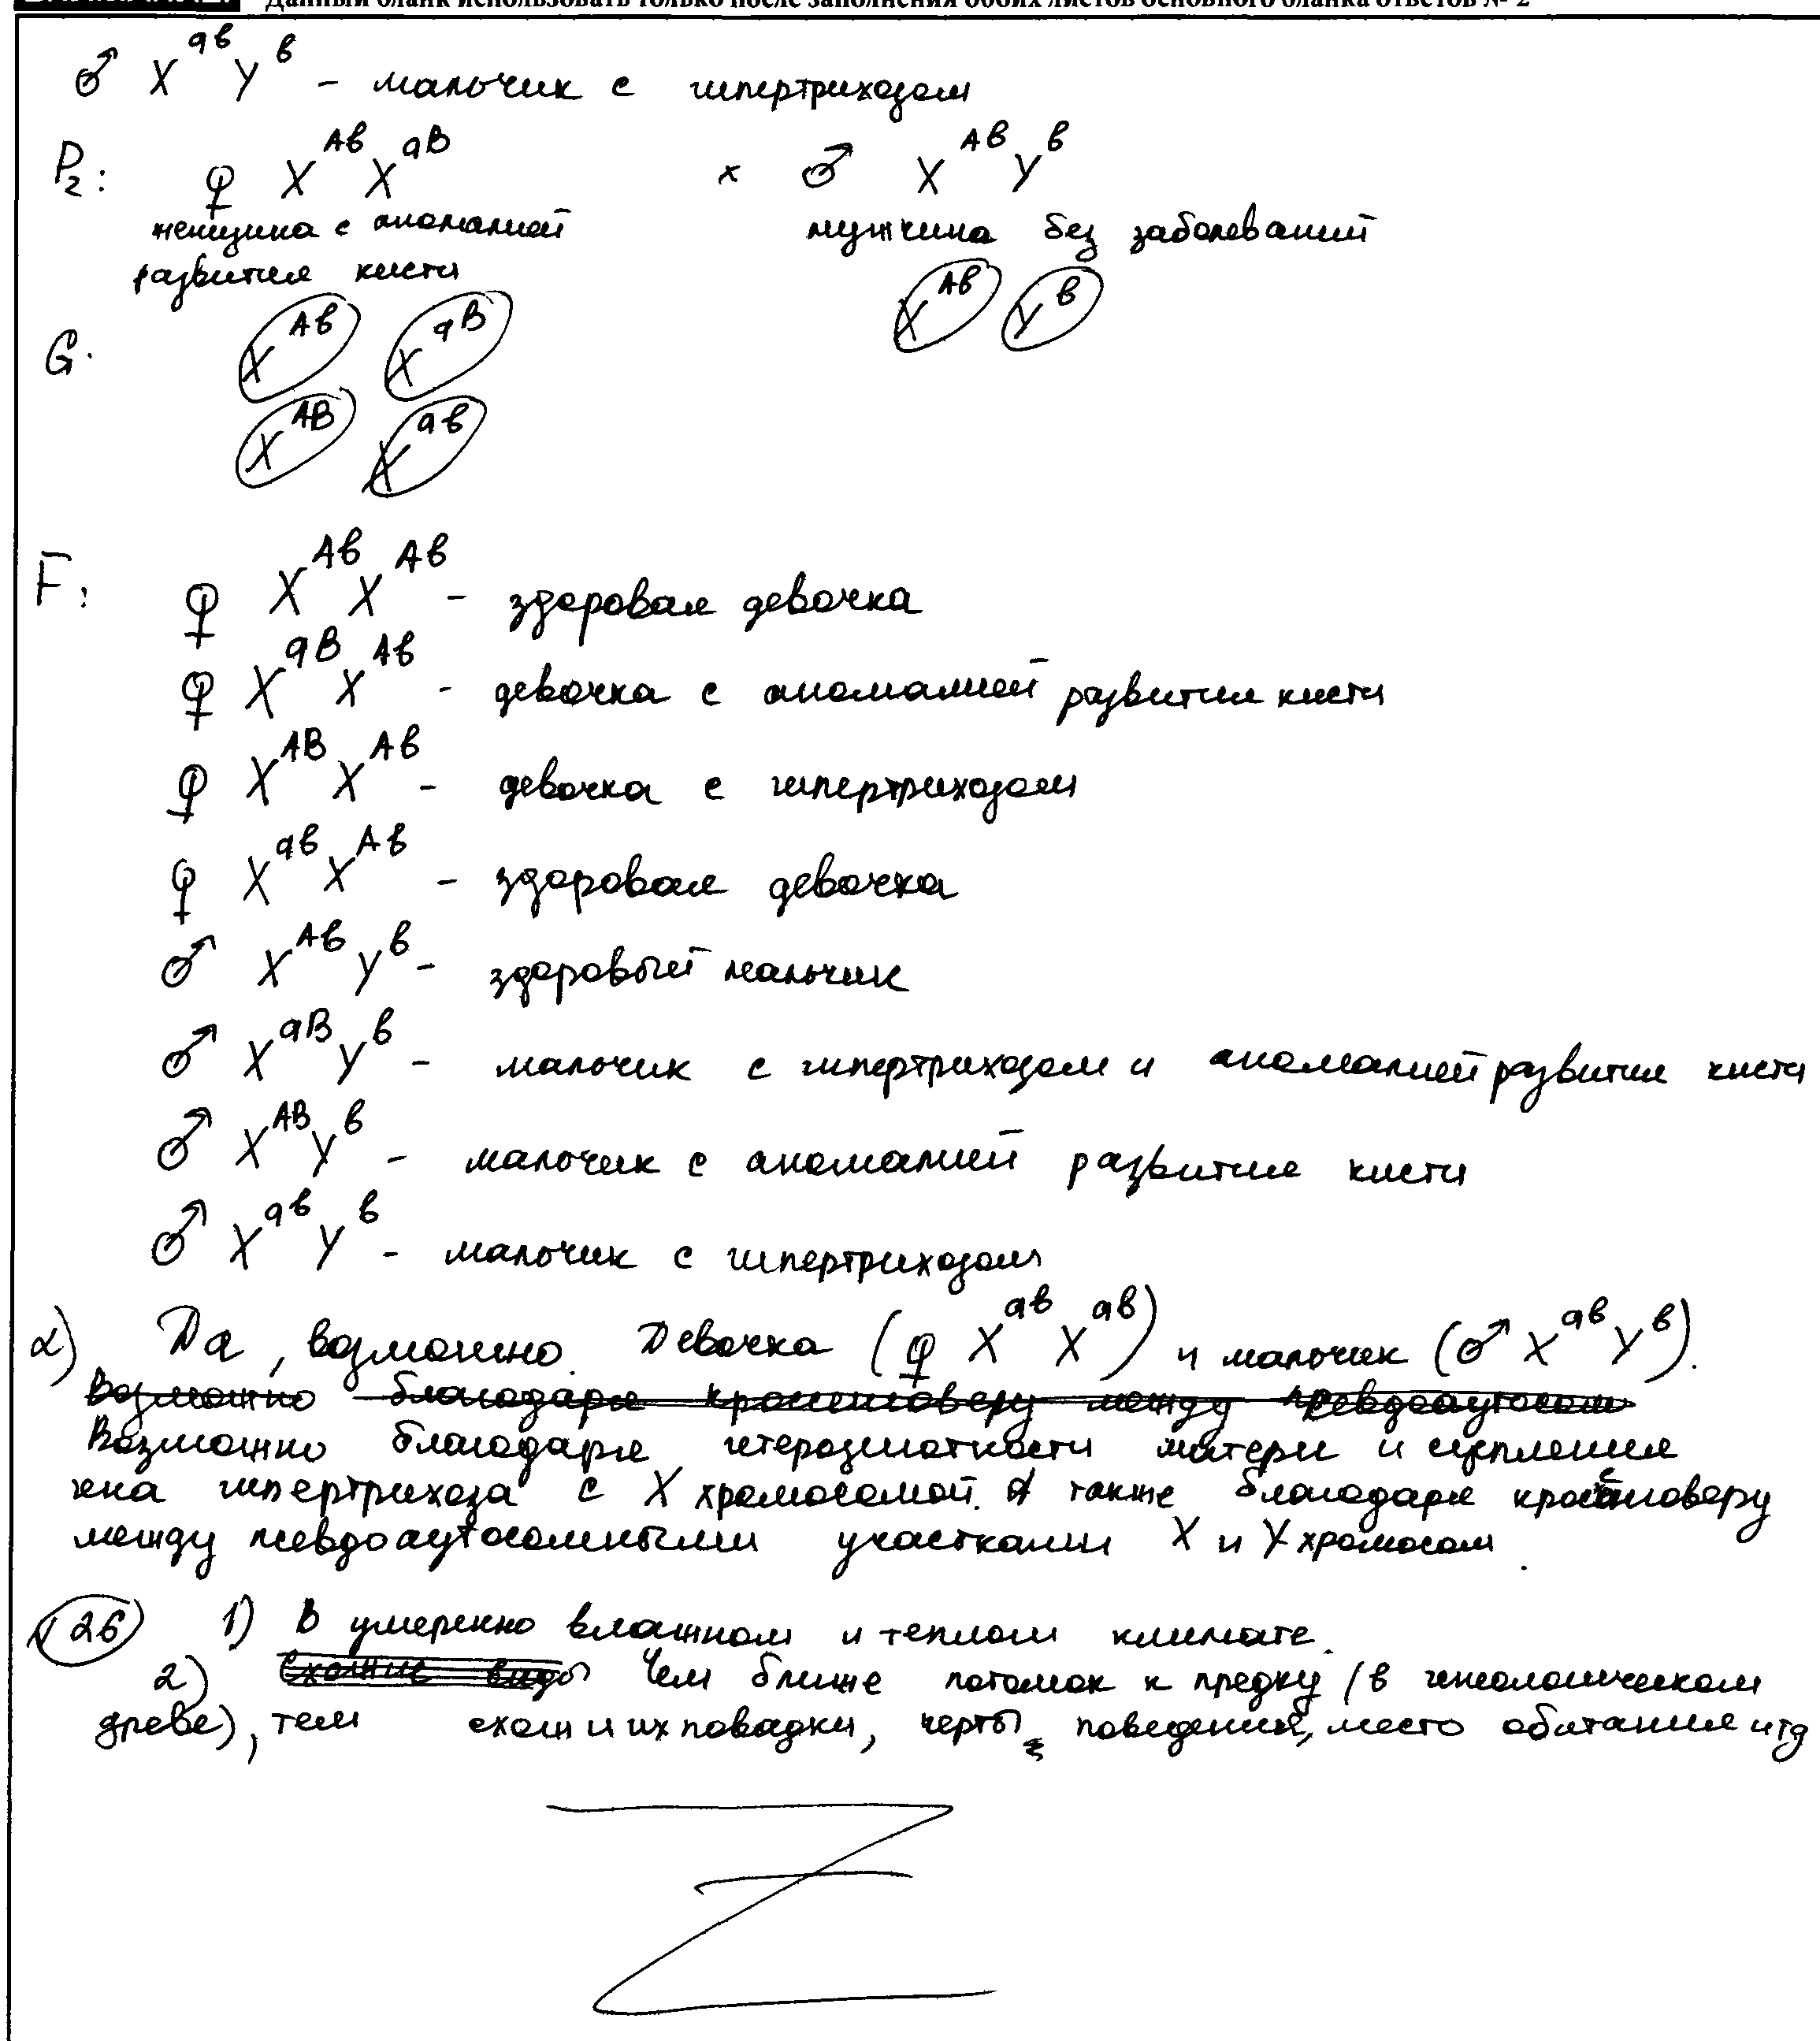 Данный бланк использовать только после заполнения обоих листов основного бланка ответов № 2
♂ X^aв Y^в - мальчик с гипертрихозом
P2: ♀ X^Aв X^aB x ♂ X^Aв Y^в
женщина с аномалией мужчина без заболеваний
развития кисти
G. X^Aв X^aB X^Aв Y^в
X^AB X^aв
F: ♀ X^Aв X^Aв - здоровая девочка
♀ X^aB X^Aв - девочка с аномалией развития кисти
♀ X^AB X^Aв - девочка с гипертрихозом
♀ X^aв X^Aв - здоровая девочка
♂ X^Aв Y^в - здоровый мальчик
♂ X^aB Y^в - мальчик с гипертрихозом и аномалией развития кисти
♂ X^AB Y^в - мальчик с аномалией развития кисти
♂ X^aв Y^в - мальчик с гипертрихозом
2) Да, возможно. Девочка (♀ X^aв X^aв) и мальчик (♂ X^aв Y^в).
Возможно благодаря кроссинговеру между псевдоаутосом
Возможно благодаря гетерозиготности матери и сцепления
гена гипертрихоза с X хромосомой. А также благодаря кроссинговеру
между псевдоаутосомными участками X и Y хромосом.
26 1) В умеренно влажном и теплом климате.
2) Схожие виды Чем ближе потомок к предку (в генеологическом
древе), тем схожи их повадки, черты поведения, место обитание итд
Z